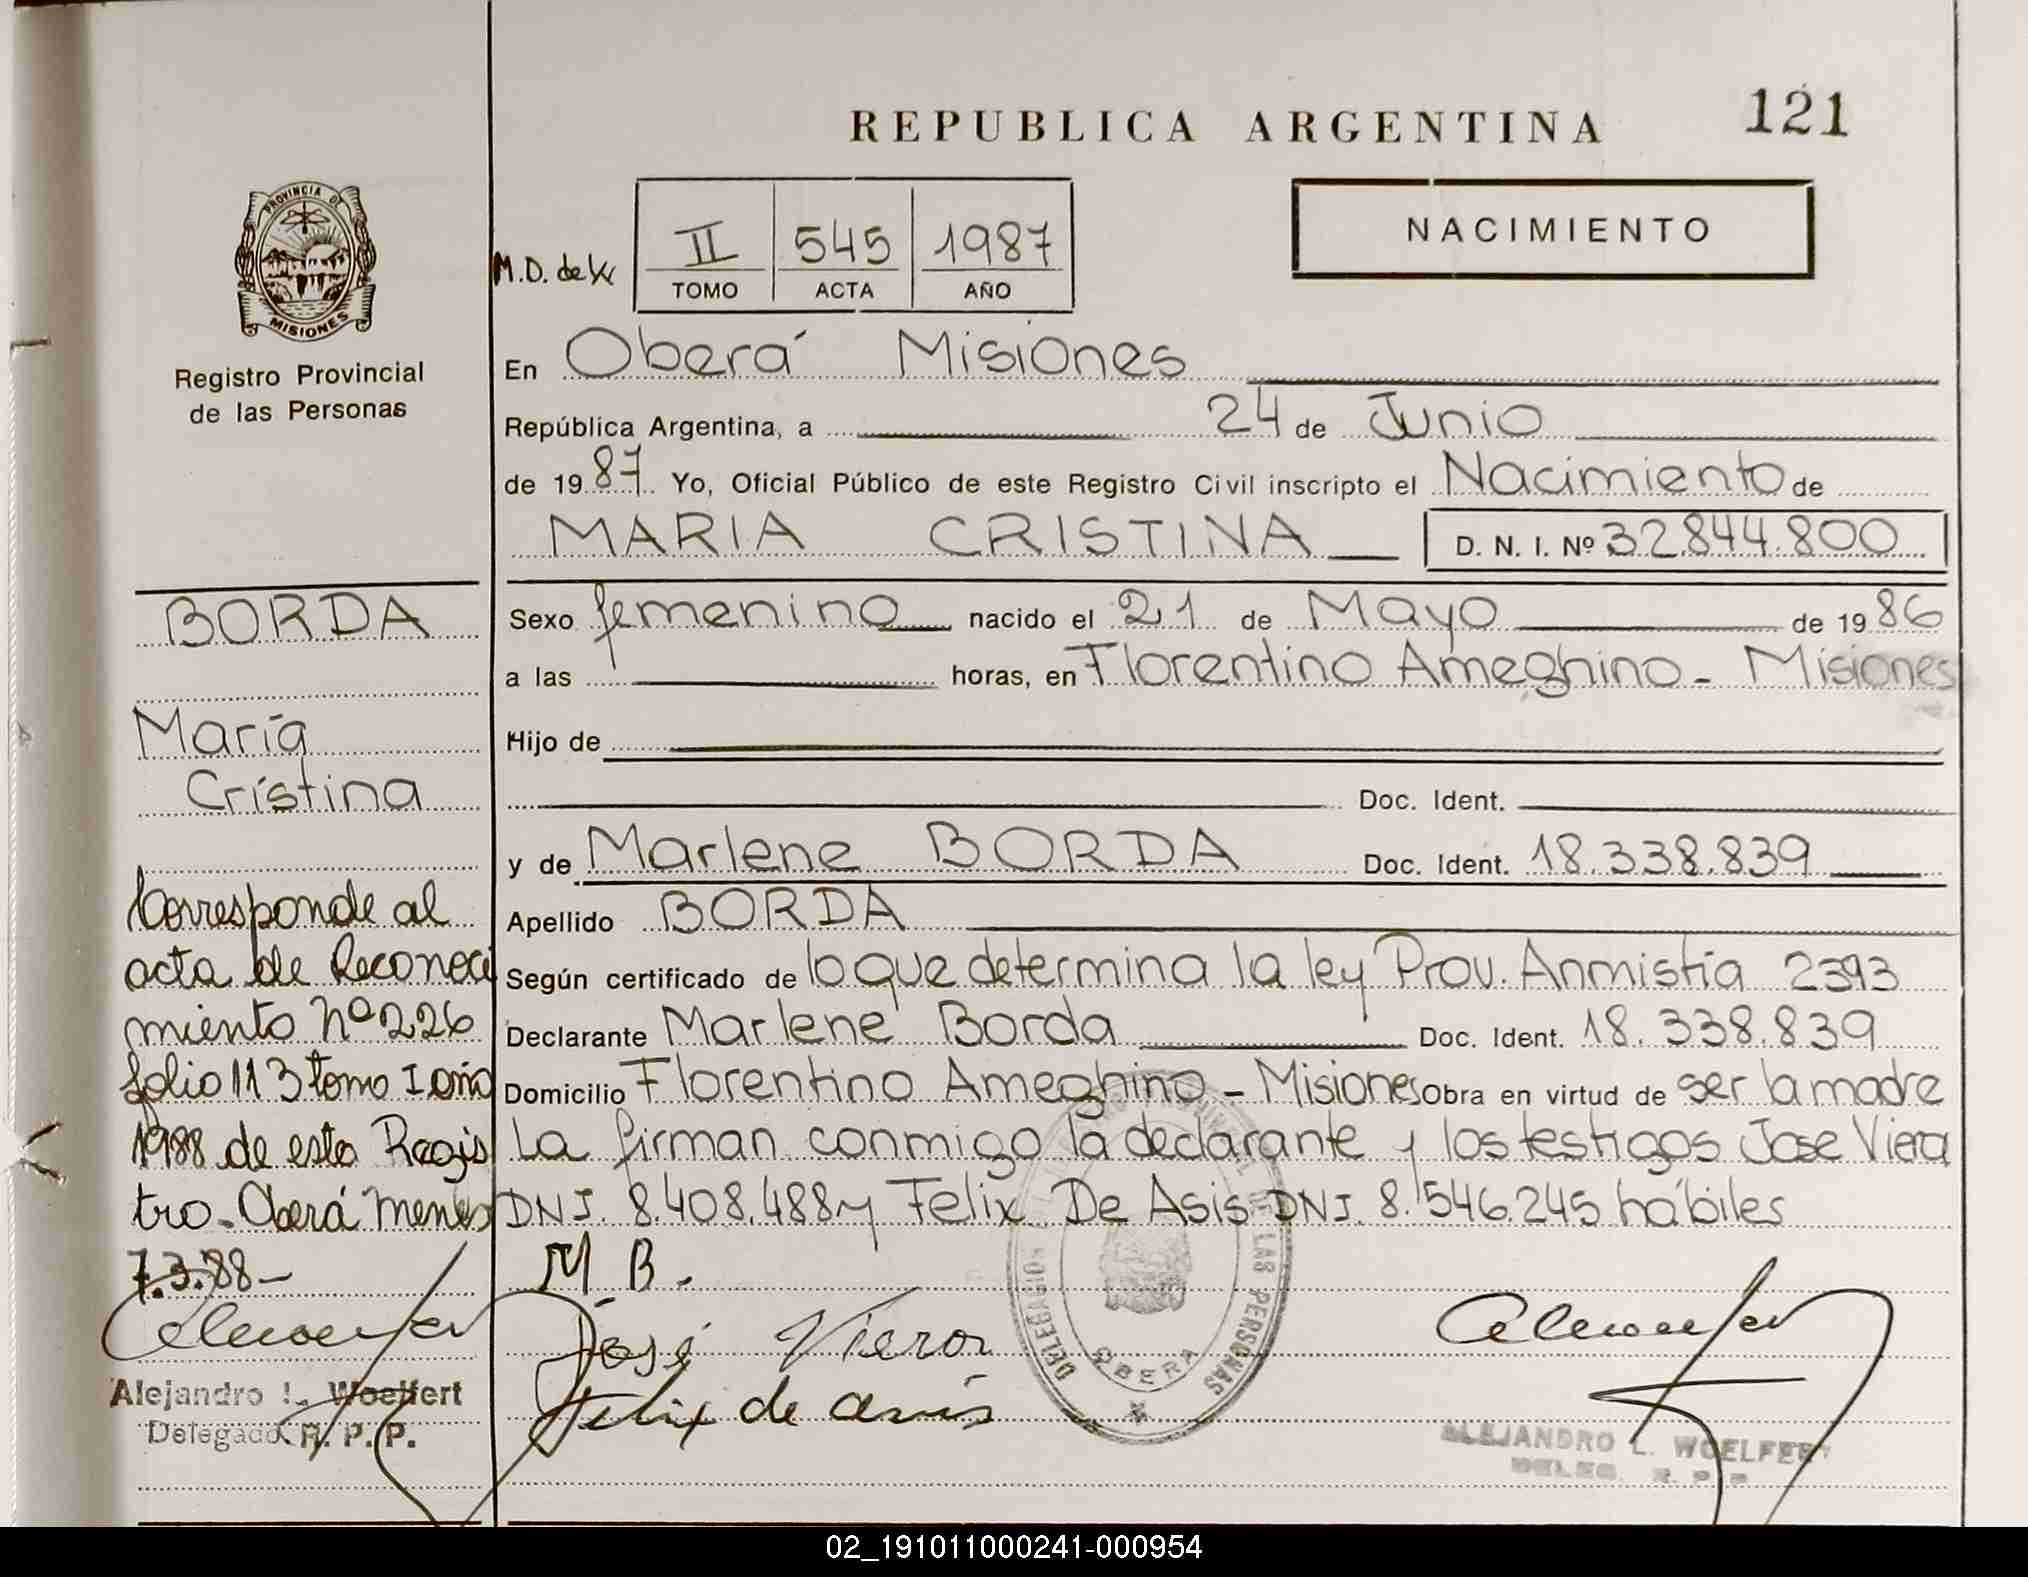 REPUBLICA ARGENTINA
121
PROVINCIA DE
MISIONES
Registro Provincial
de las Personas
M.D. de
II 545 1987
TOMO ACTA AÑO
NACIMIENTO
En Oberá Misiones
República Argentina, a 24 de Junio
de 1987. Yo, Oficial Público de este Registro Civil inscripto el Nacimiento de
MARIA CRISTINA D. N. I. Nº 32.844.800
Sexo femenino nacido el 21 de Mayo de 1986
a las horas, en Florentino Ameghino - Misiones
Hijo de
Doc. Ident.
y de Marlene BORDA Doc. Ident. 18.338.839
Apellido BORDA
Según certificado de lo que determina la ley Prov. Anmistía 2393
Declarante Marlene Borda Doc. Ident. 18.338.839
Domicilio Florentino Ameghino - Misiones Obra en virtud de ser la madre
La firman conmigo la declarante y los testigos Jose Viera
DNI. 8.408.488 y Felix De Asis DNI. 8.546.245 hábiles
M B.
José Viera
Felix de asis
DELEGACION
LAS PERSONAS
OBERA
ALEJANDRO L. WOELFERT
DELEG. R. P. P.
BORDA
María
Cristina
Corresponde al
acta de Reconoci
miento Nº 226
folio 113 tomo I año
1988 de este Regis
tro - Oberá Mnes
7.3.88 -
Alejandro L. Woelfert
Delegado R. P. P.
02_191011000241-000954